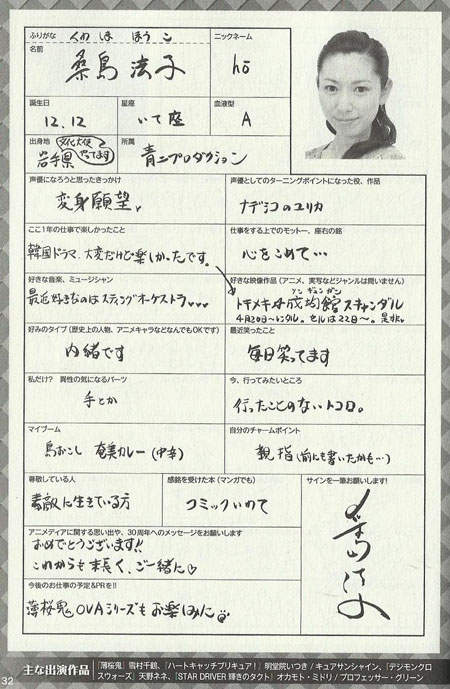 ふりがな
くわしま ほうこ
ニックネーム
名前
桑島 法子
hō
誕生日
星座
血液型
12.12
いて座
A
出身地
所属
岩手県
文化大使やってます
青二プロダクション
声優になろうと思ったきっかけ
声優としてのターニングポイントになった役、作品
変身願望
ナデシコのユリカ
ここ1年の仕事で楽しかったこと
仕事をする上でのモットー、座右の銘
韓国ドラマ、大変だけど楽しかったです。
心をこめて…
好きな音楽、ミュージシャン
好きな映像作品(アニメ、実写などジャンルは問いません)
最近好きなのはスティングオーケストラ
トキメキ☆成均館スキャンダル
4月20日〜レンタル。セルは22日〜。
好みのタイプ(歴史上の人物、アニメキャラなどなんでもOKです)
最近笑ったこと
内緒です
毎日笑ってます
私だけ? 異性の気になるパーツ
今、行ってみたいところ
手とか
行ったことのないトコロ。
マイブーム
自分のチャームポイント
島おこし 奄美カレー(中辛)
親指(前にも書いたかも…)
尊敬している人
感銘を受けた本(マンガでも)
サインを一筆お願いします!
素敵に生きている方
コミックいわて
アニメディアに関する思い出や、30周年へのメッセージをお願いします
おめでとうございます!!
これからも末長く、ご一緒に♡
今後のお仕事の予定&PRを!!
薄桜鬼OVAシリーズもお楽しみに
32
主な出演作品
『薄桜鬼』雪村千鶴、『ハートキャッチプリキュア!』明堂院いつき/キュアサンシャイン、『デジモンクロ
スウォーズ』天野ネネ、『STAR DRIVER 輝きのタクト』オカモト・ミドリ/プロフェッサー・グリーン